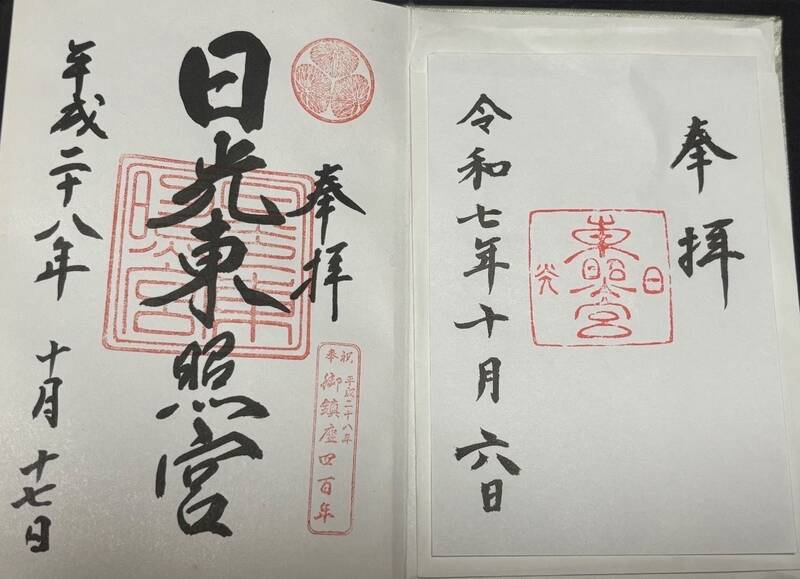 奉拝
日光東照宮
平成二十八年 十月 十七日
奉祝 平成二十八年
御鎮座四百年
奉拝
日光
東照宮
令和七年十月六日